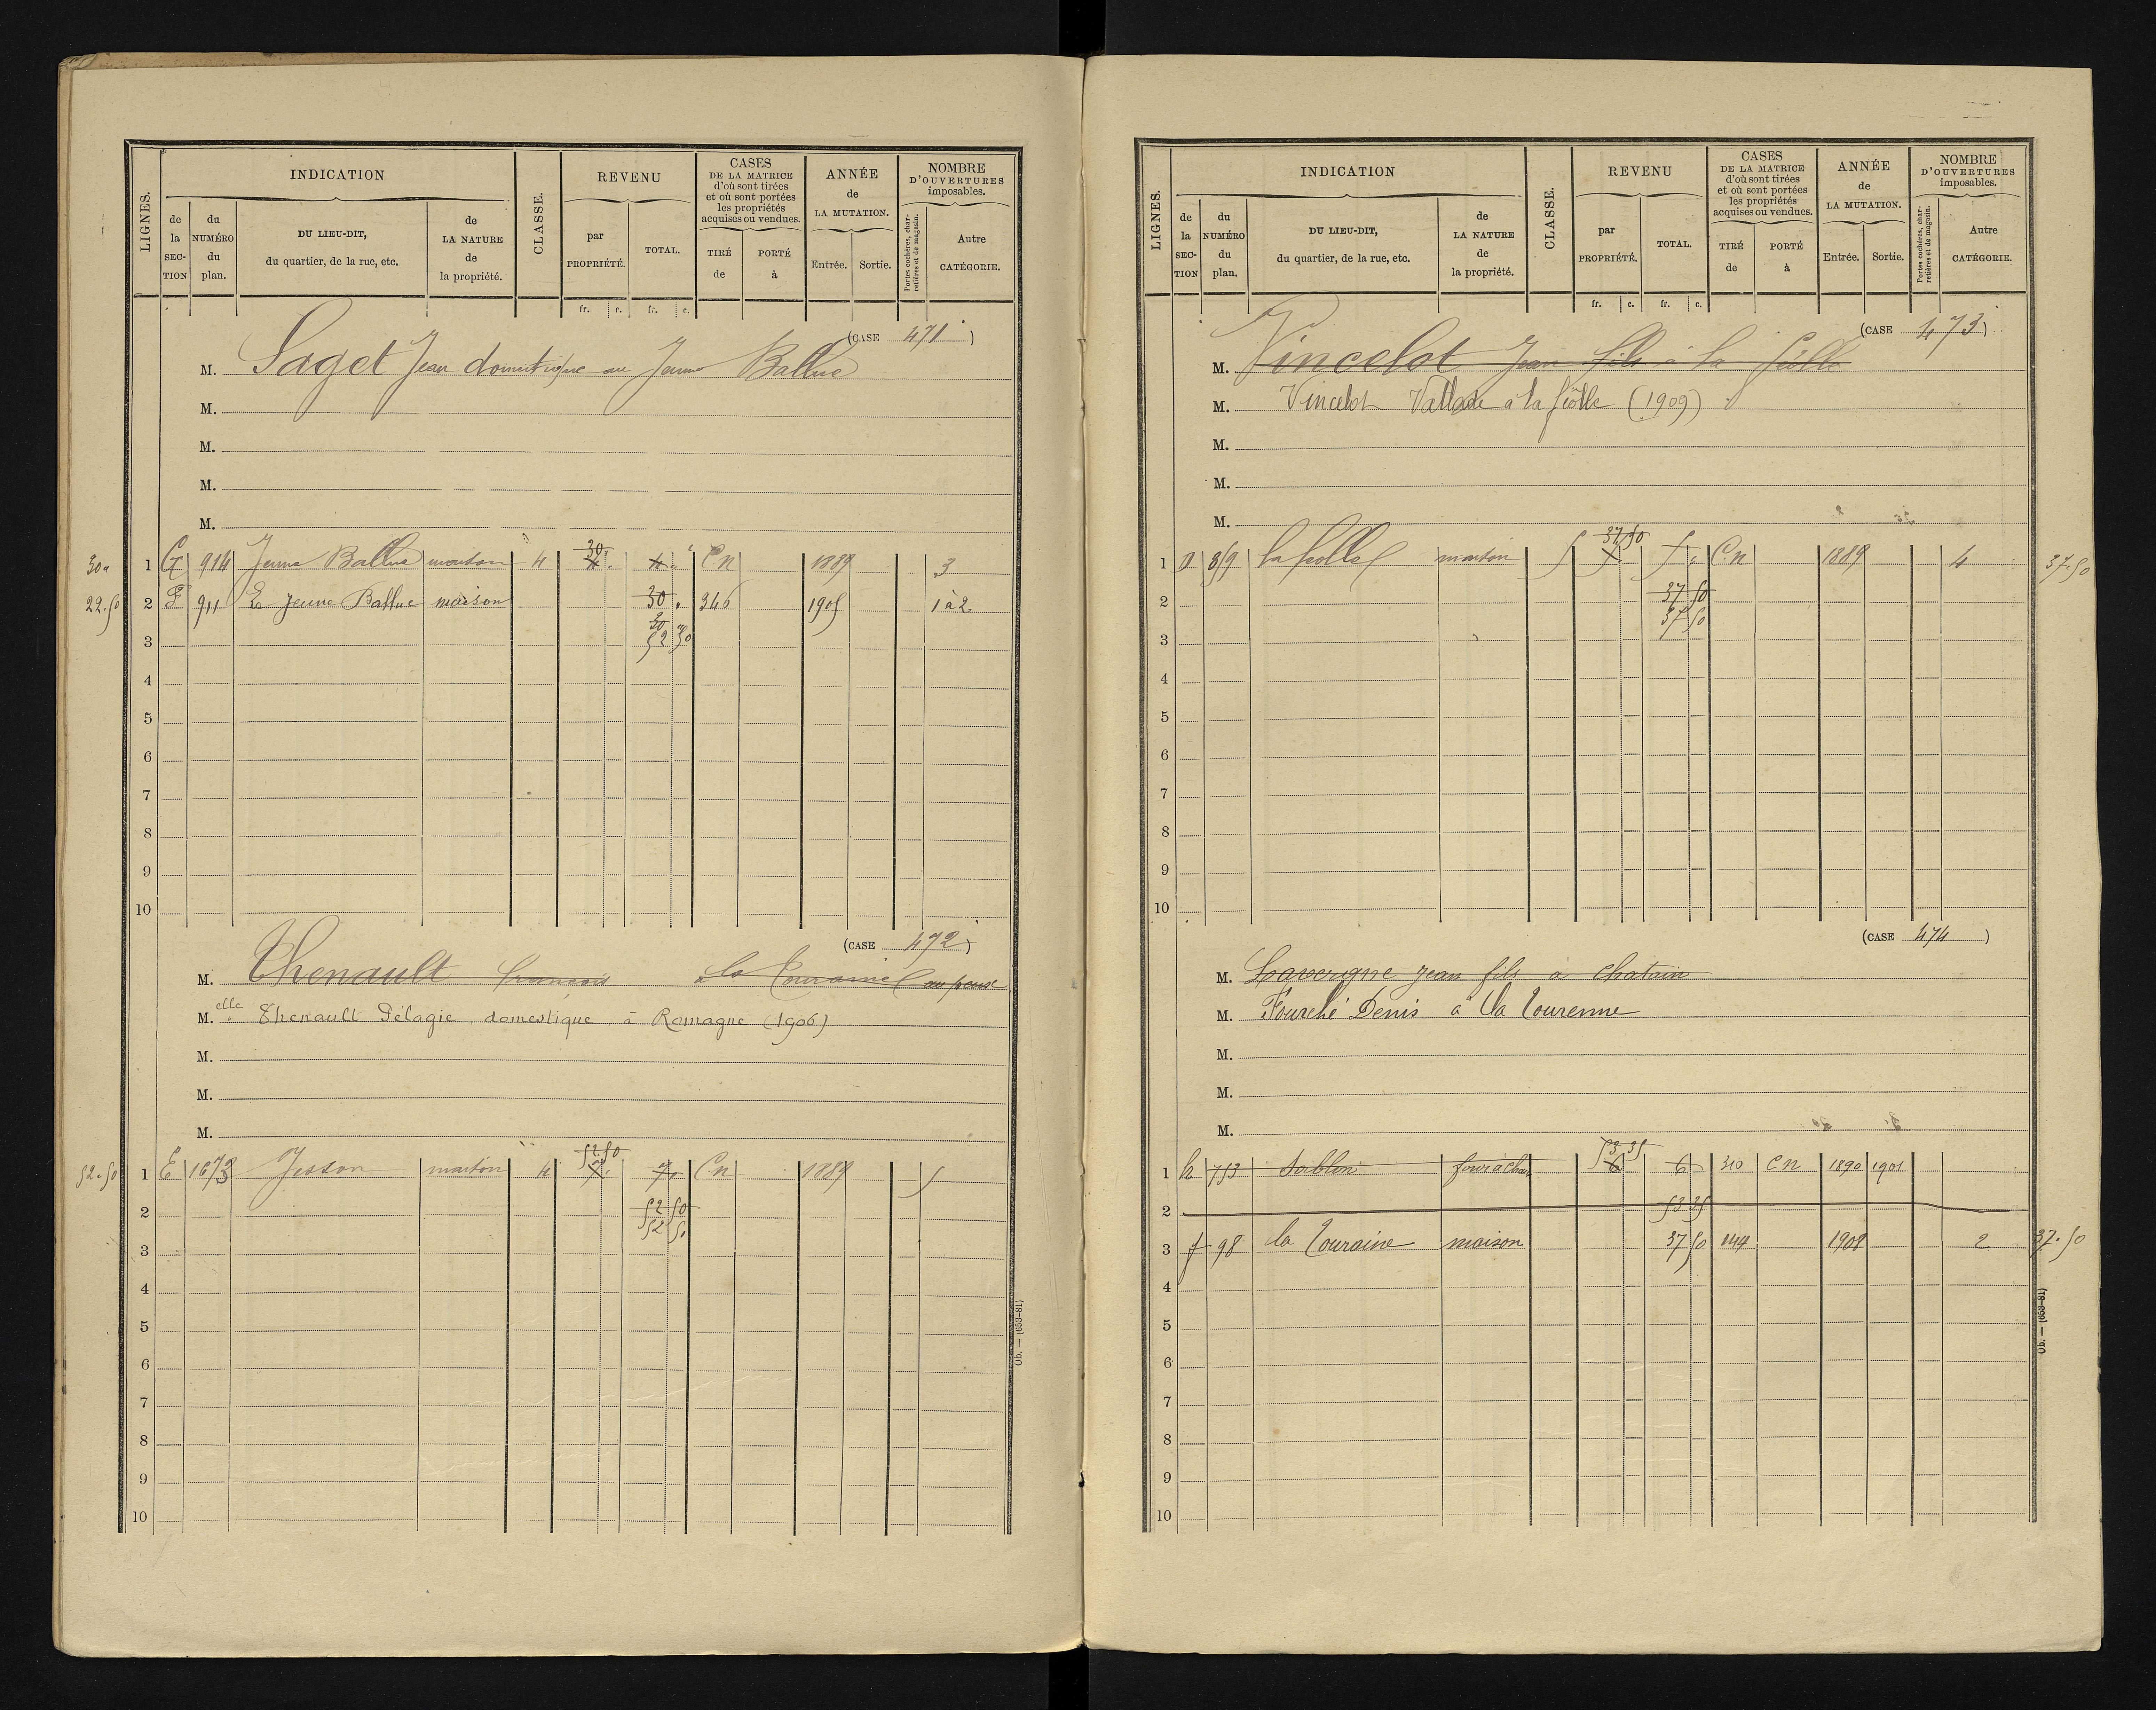 LIGNES. INDICATION CLASSE. REVENU CASES DE LA MATRICE d'où sont tirées et où sont portées les propriétés acquises ou vendues. ANNÉE de LA MUTATION. NOMBRE D'OUVERTURES imposables.
de la SECTION du NUMÉRO du plan. DU LIEU-DIT, du quartier, de la rue, etc. de LA NATURE de la propriété. par PROPRIÉTÉ. TOTAL. TIRÉ de PORTÉ à Entrée. Sortie. Portes cochères, charretières et de magasin. Autre CATÉGORIE.
fr. c. fr. c.
(CASE 471)
M. Saget Jean domestique au Jeune Ballue
M.
M.
M.
M.
30 "
30 " 1 G 914 Jeune Ballue maison 4 4 " 4 " C.n 1889 3
22.50 2 F 911 Le Jeune Ballue maison 30 " 346 1905 1 à 2
30 "
3 52 50
4
5
6
7
8
9
10
(CASE 472)
M. Thenault françois la Touraine
M.elle Thenault Pélagie domestique à Romagne (1906)
M.
M.
M.
52.50
52.50 1 E 1673 Jesson maison 4 7 " 7 " C.n 1889 5
2 52 50
52 50
3
4
5
6
7
8
9
10
Ob. — (653-81)
LIGNES. INDICATION CLASSE. REVENU CASES DE LA MATRICE d'où sont tirées et où sont portées les propriétés acquises ou vendues. ANNÉE de LA MUTATION. NOMBRE D'OUVERTURES imposables.
de la SECTION du NUMÉRO du plan. DU LIEU-DIT, du quartier, de la rue, etc. de LA NATURE de la propriété. par PROPRIÉTÉ. TOTAL. TIRÉ de PORTÉ à Entrée. Sortie. Portes cochères, charretières et de magasin. Autre CATÉGORIE.
fr. c. fr. c.
(CASE 473)
M. Vincelot Jean fils à la
M. Vincelot à la (1909)
M.
M.
M.
37 50
1 859 la maison 5 5 " C.n 1889 4 37.50
2 37 50
37 50
3
4
5
6
7
8
9
10
(CASE 474)
M. Lavergne Jean fils à Chatain
M. Fourché Denis à la Tourenne
M.
M.
M.
53 35
1 753 Sablon four à chaux 6 6 310 C n 1890 1901
2 53 35
3 f 98 la Touraine maison 37 50 144 1908 2 37.50
4
5
6
7
8
9
10
Ob. — (653-81)